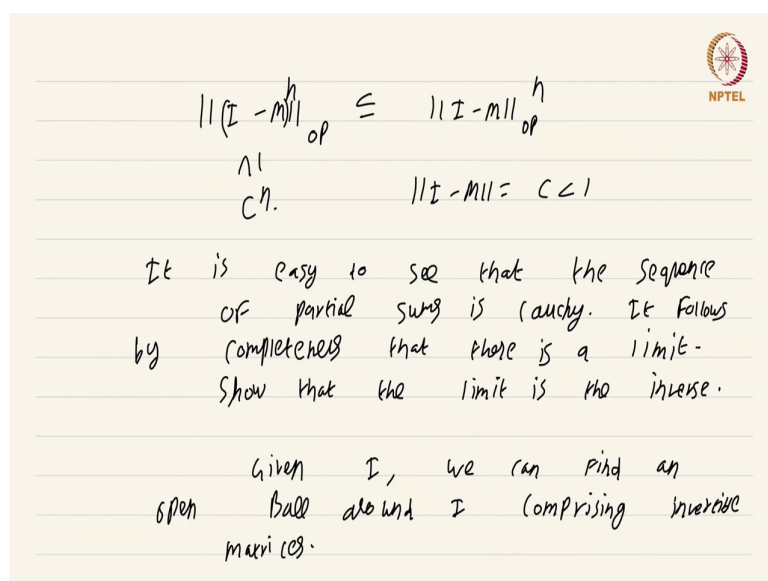 NPTEL
||(I - M)^n||_op ≤ ||I - M||_op^n
∧|
C^n. ||I - M|| = C < 1
It is easy to see that the sequence
of partial sums is Cauchy. It follows
by completeness that there is a limit-
Show that the limit is the inverse.
Given I, we can find an
open Ball around I comprising invertible
matrices.